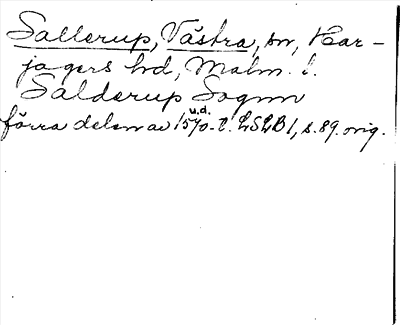 Sallerup, Västra, sn, Har-
jagers hd, Malm. l.
Salderup Sognn
förra delen av 1570-t. LSLB 1, s. 89. orig.
u.d.